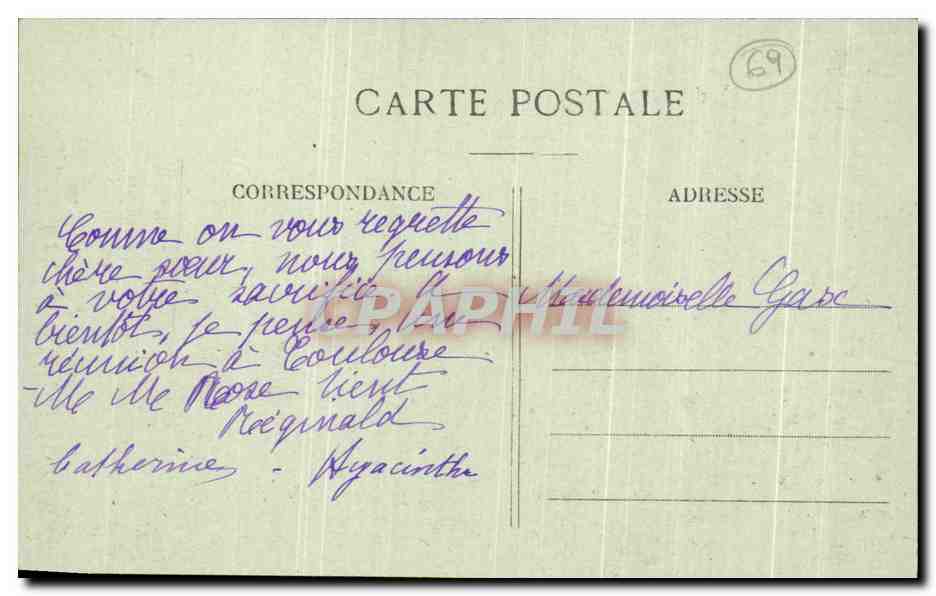 69
CARTE POSTALE
CORRESPONDANCE
ADRESSE
Comme on vous regrette
chère soeur, nous pensons
à votre sacrifice A
bientôt, je pense, la
réunion à Toulouse
M M Rose Vient
Réginald
Catherine - Hyacinthe
Mademoiselle Gasc
CPAPHIL